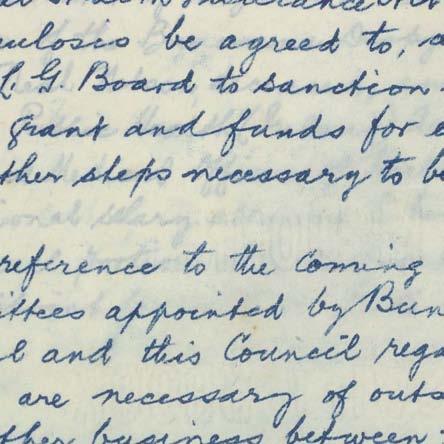 Insurance Act
culosis be agreed to,
L. G. Board to sanction
grant and funds for
ther steps necessary to be
reference to the coming
ittees appointed by Bun
l and this Council rega
are necessary of outs
ther business between